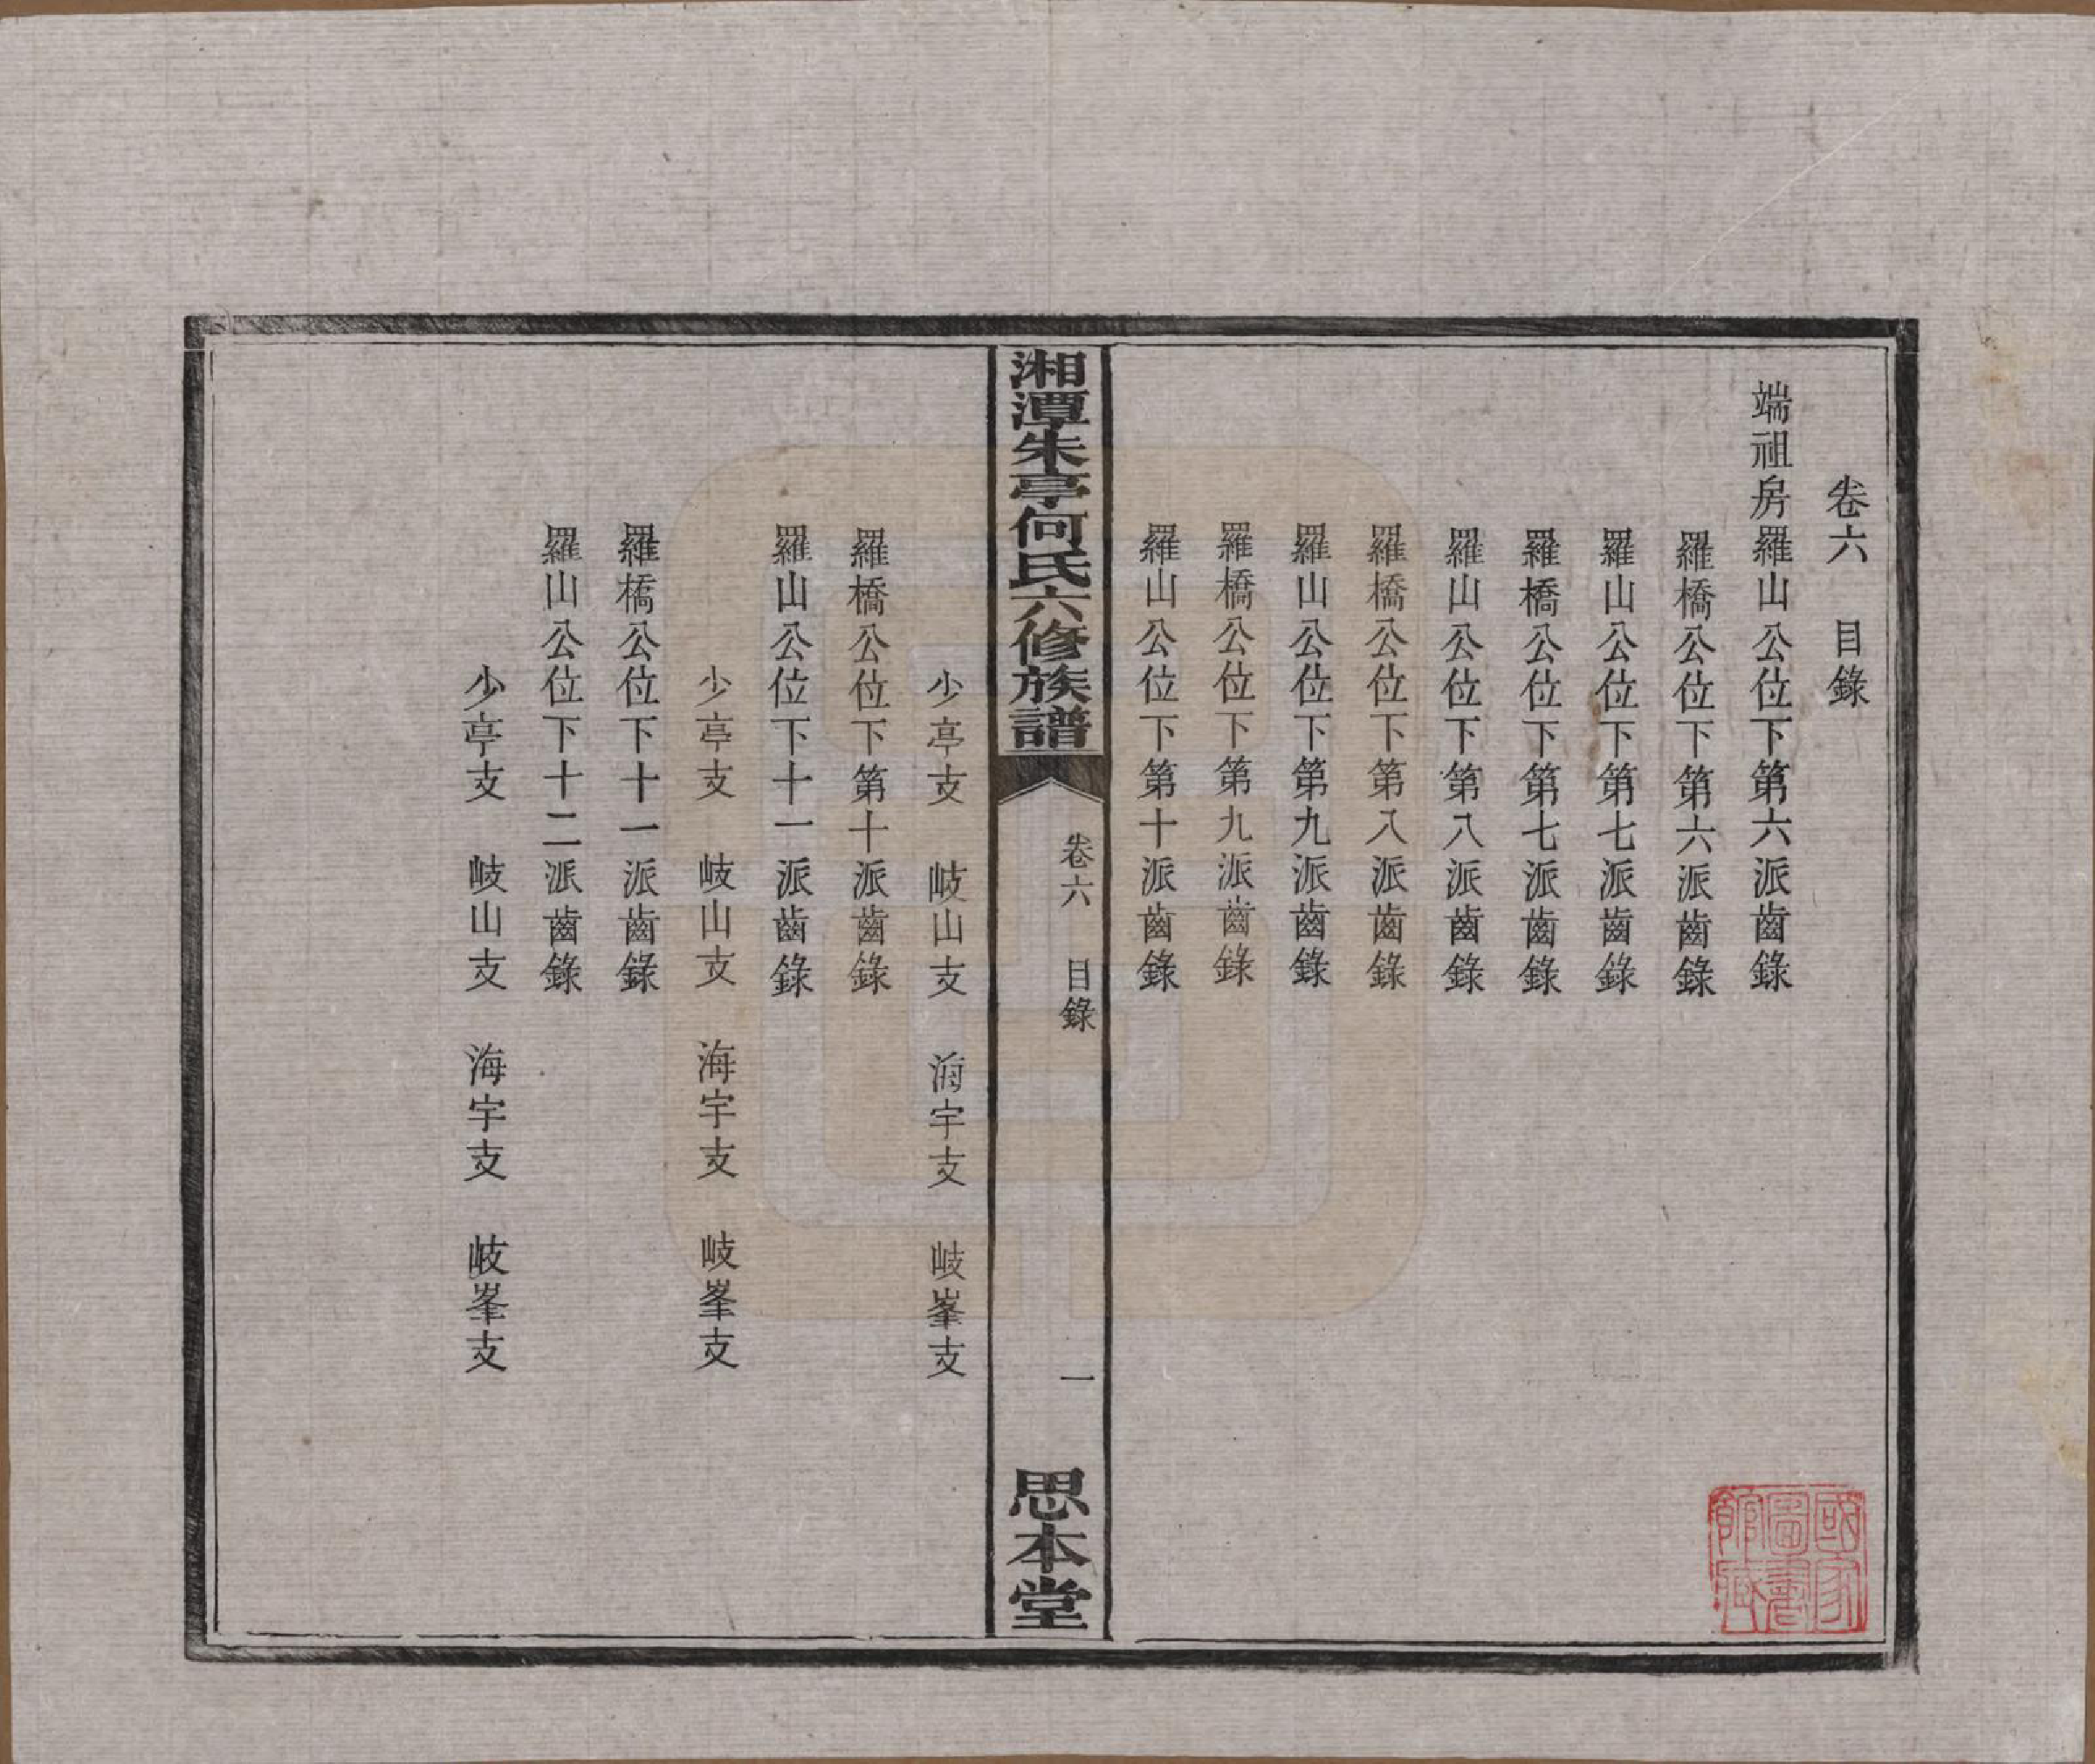 卷六　目錄
端祖房羅山公位下第六派齒錄
羅橋公位下第六派齒錄
羅山公位下第七派齒錄
羅橋公位下第七派齒錄
羅山公位下第八派齒錄
羅橋公位下第八派齒錄
羅山公位下第九派齒錄
羅橋公位下第九派齒錄
羅山公位下第十派齒錄
湘潭朱亭何氏六修族譜
卷六　目錄
一
思本堂
少亭支　岐山支　海宇支　岐峯支
羅橋公位下第十派齒錄
羅山公位下十一派齒錄
少亭支　岐山支　海宇支　岐峯支
羅橋公位下十一派齒錄
羅山公位下十二派齒錄
少亭支　岐山支　海宇支　岐峯支
國家
圖書
館藏